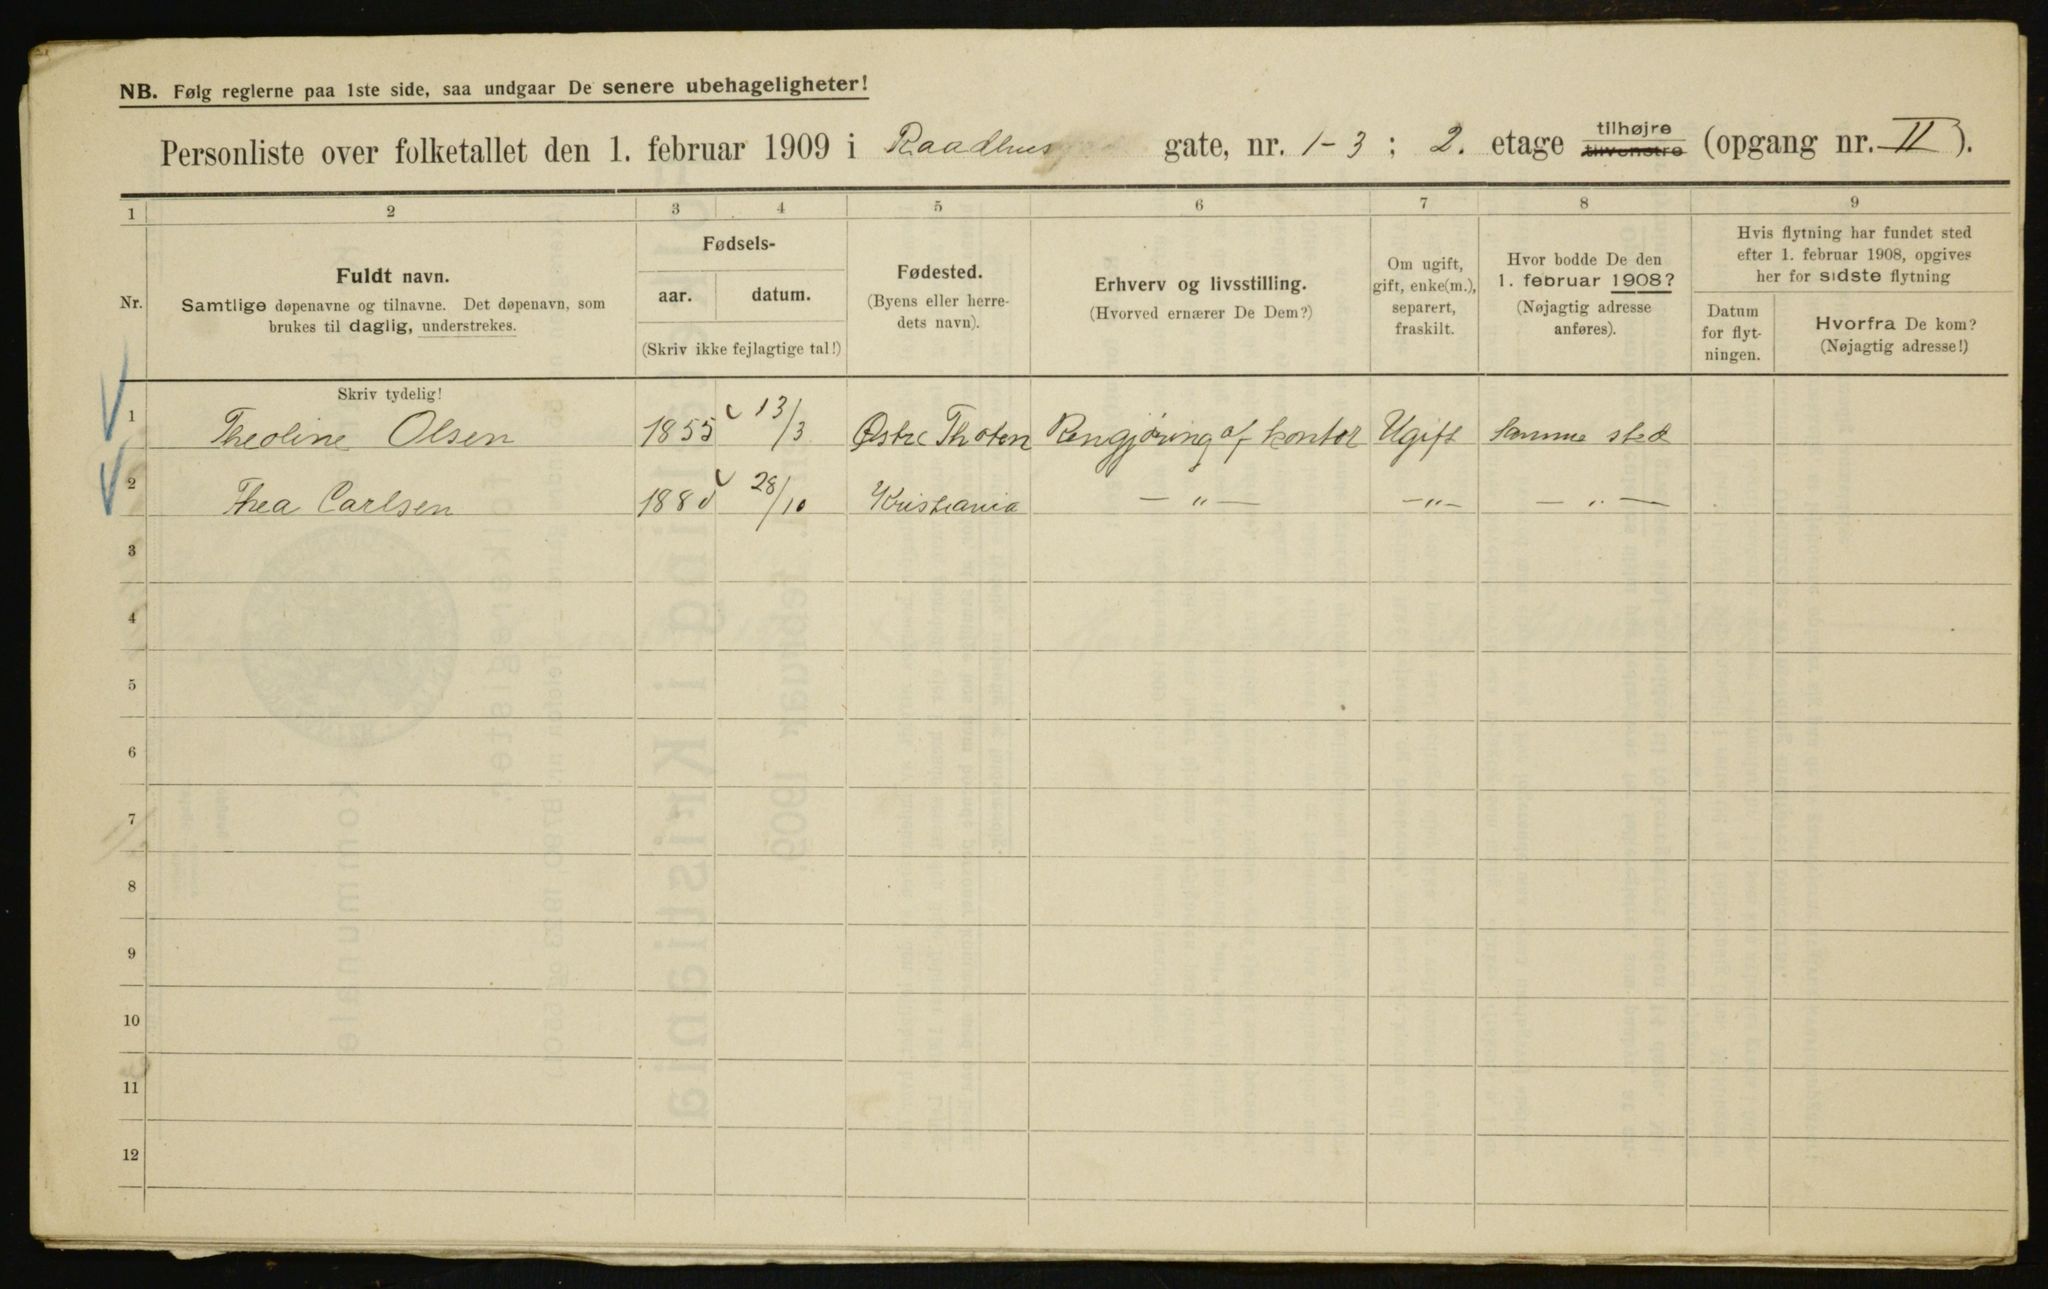 NB. Følg reglerne paa 1ste side, saa undgaar De senere ubehageligheter!
Personliste over folketallet den 1. februar 1909 i Raadhus gate, nr. 1-3 ; 2. etage tilhøjre tilvenstre (opgang nr. II ).
1 2 3 4 5 6 7 8 9
Nr.
Fuldt navn.
Samtlige døpenavne og tilnavne. Det døpenavn, som
brukes til daglig, understrekes.
Fødsels-
aar. datum.
(Skriv ikke fejlagtige tal!)
Fødested.
(Byens eller herre-
dets navn).
Erhverv og livsstilling.
(Hvorved ernærer De Dem?)
Om ugift,
gift, enke(m.),
separert,
fraskilt.
Hvor bodde De den
1. februar 1908?
(Nøjagtig adresse
anføres).
Hvis flytning har fundet sted
efter 1. februar 1908, opgives
her for sidste flytning
Datum
for flyt-
ningen.
Hvorfra De kom?
(Nøjagtig adresse!)
Skriv tydelig!
1 Theoline Olsen 1855 13/3 Østre Thoten Rengjøring af kontor Ugift Samme sted
2 Thea Carlsen 1880 28/10 Kristiania — „ — — „ — — „ —
3
4
5
6
7
8
9
10
11
12